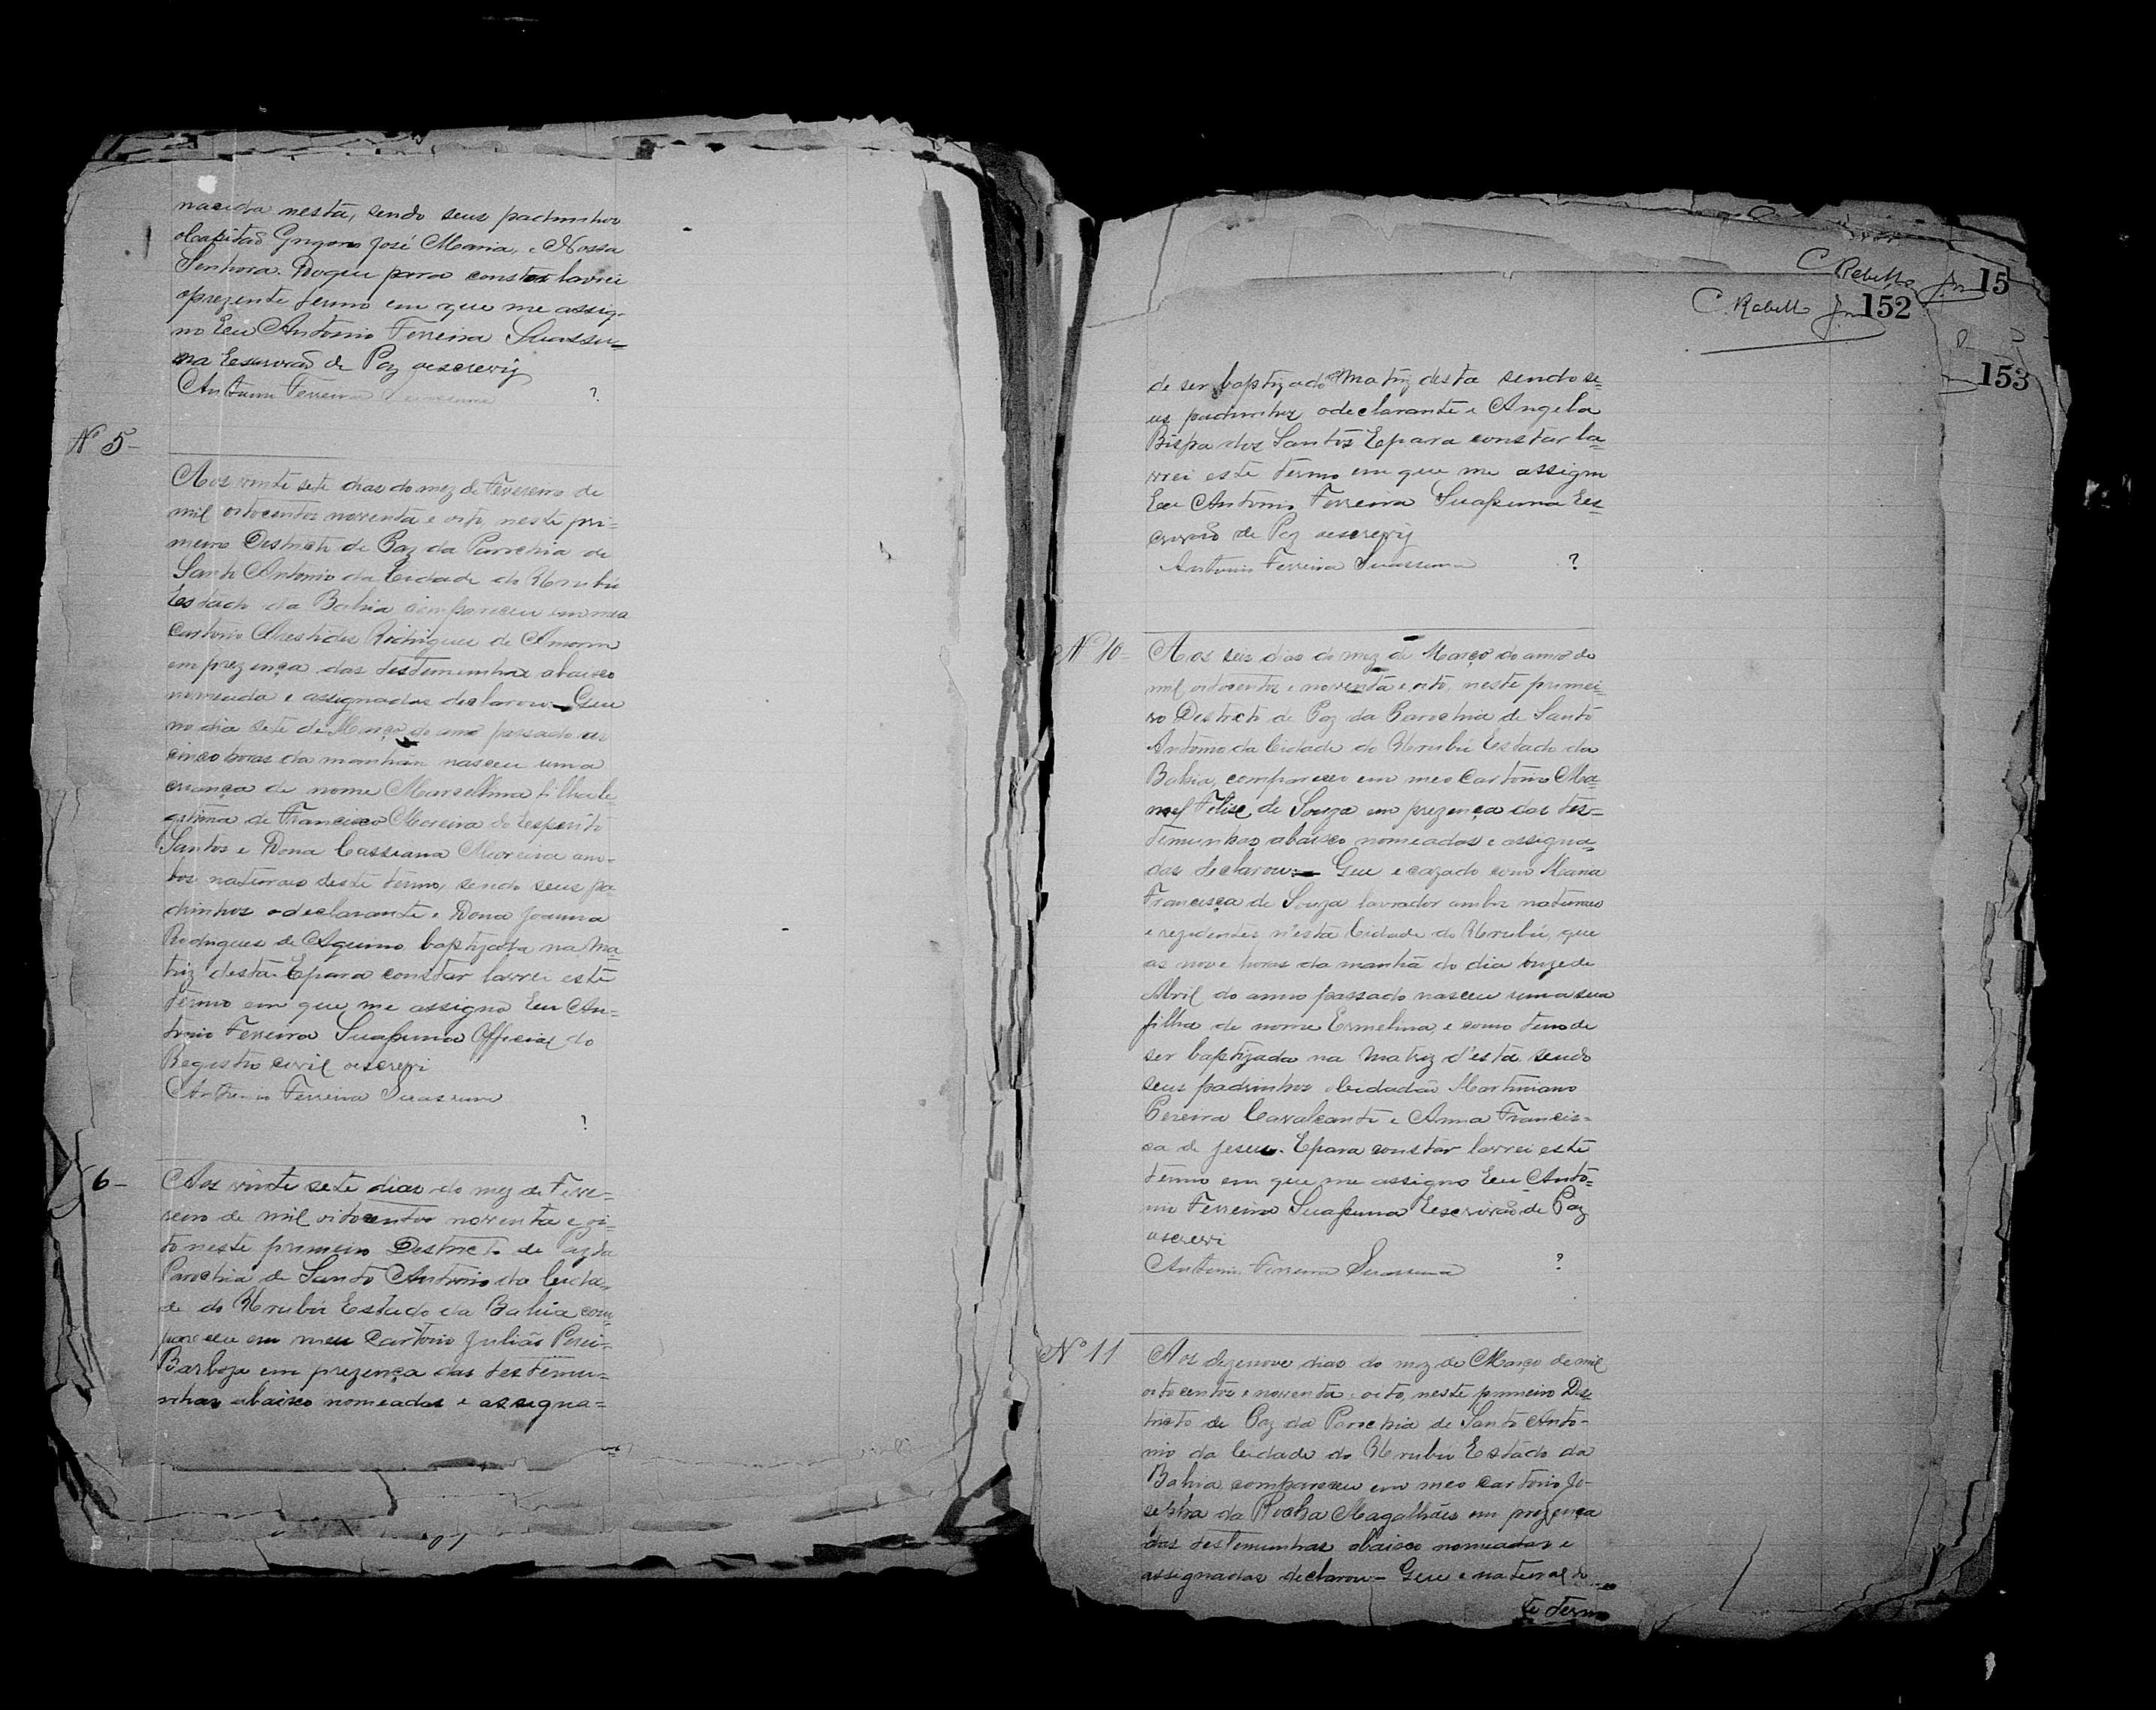 nascida nesta, sendo seus padrinhos
o Capitaõ José Maria, e Nossa
Senhora. Doque para constar lavrei
oprezente termo em que me assig-
no Eeu Antonio Ferreira Suassu=
na Escrivaõ de Paz oescrevij
Antonio Ferreira Suassuna
?
Nº 5-
Aos vinte sete dias do mez de Fevereiro de
mil oitocentos noventa e oito, neste pri-
meiro Districto de Paz da Parochia de
Santo Antonio da Cidade do Urubú
Estado da Bahia compareceu em meo
Cartorio Aristides Rodrigues de Amorim
em prezença das testemunhas abaixo
nomeada e assignadas declarou- Que
no dia sete de Março do anno passado as
cinco horas da manhan nasceu uma
criança de nome Marsellina filha le
getima de Francisco Moreira do Esperito
Santos e Dona Cassiana Moreira am-
bos naturaes deste termo, sendo seus pa
drinhos odeclarante e Dona Joanna
Rodrigues de Aquino baptizada na Ma
triz desta. Epara constar lavrei este
termo em que me assigno Eeu An=
tonio Ferreira Suaſsuna Official do
Registro civil oescrevi
Antonio Ferreira Suassuna
?
6-
Aos vinte sete dias do mez de Feve-
reiro de mil oitocentos noventa e oi-
to neste primeiro Districto de az da
Parochia de Santo Antonio da Cida-
de do Urubú Estado da Bahia com
pareceu em meu Cartorio Julião Perei-
Barboza em prezença das testemu-
nhas abaixo nomeadas e assigna=
C Rebello Jnr 15
C. Rebello Jnr 152
153
de ser baptizado Matriz desta sendo se=
us padrinhos odeclarante e Angela
Bispa dos Santos Epara constar la=
vrei este termo em que me assigno
Eeu Antonio Ferreira Suaſsuna Es=
crivaõ de Paz oescrevij
Antonio Ferreira Suassuna
?
Nº 10=
Aos seis dias do mez de Março do anno de
mil oitocentos e noventa e oito, neste primei-
ro Districto de Paz da Parochia de Santo
Antonio da Cidade do Urubú Estado da
Bahia, compareceo em meo Cartorio Ma-
noel Felix de Souza em prezença das tes=
temunhas abaixo nomeadas e assigna=
das declarou:- Que e cazado com Maria
Francisca de Souza lavrador ambos naturaes
e rezidentes n'esta Cidade do Urubú, que
as nove horas da manhã do dia onze de
Abril do anno passado nasceu uma sua
filha de nome Ermelina, e como tem de
ser baptizada na Matriz d'esta sendo
seus padrinhos oCidadaõ Martiniano
Pereira Cavalcante e Anna Francis=
ca de Jesus. Epara constar lavrei este
termo em que me assigno Eeu Anto=
nio Ferreira Suaſsuna Escrivaõ de Paz
oescrevi
Antonio Ferreira Suassuna
?
Nº 11
Aos dezenove dias do mez de Março de mil
oitocentos e noventa e oito, neste primeiro Dis
tricto de Paz da Parochia de Santo Anto-
nio da Cidade do Urubú Estado da
Bahia compareceu em meo Cartorio Jo-
sepha da Rocha Magalhães em prezença
das testemunhas abaixo nomeadas e
assignadas declarou- Que e natural d
te termo